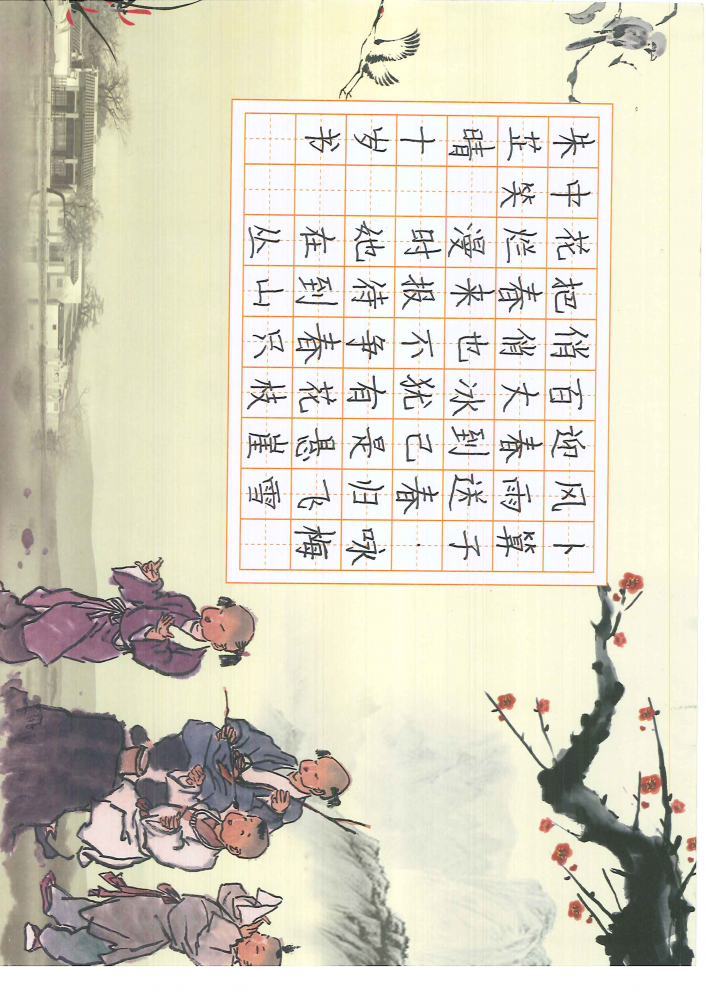 卜算子·咏梅
风雨送春归飞雪
迎春到己是悬崖
百丈冰犹有花枝
俏俏也不争春只
把春来报待到山
花烂漫时她在丛
中笑
朱芷晴十岁书